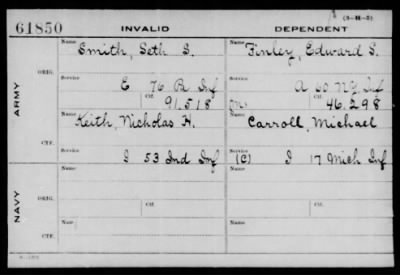 (3-H-3)
61850 INVALID DEPENDENT
Name Smith, Seth S. Name Finley, Edward S.
ARMY
ORIG.
Service E 76 Pa Inf Service A 50 NY Inf
Ctf. 91.518 (M) Ctf. 46.298
Name Keith, Nicholas H. Name Carroll, Michael
CTF.
Service I 53 Ind Inf Service (C) I 17 Mich Inf
NAVY
Name Name
ORIG.
Service Ctf. Service Ctf.
Name Name
CTF.
Service Service